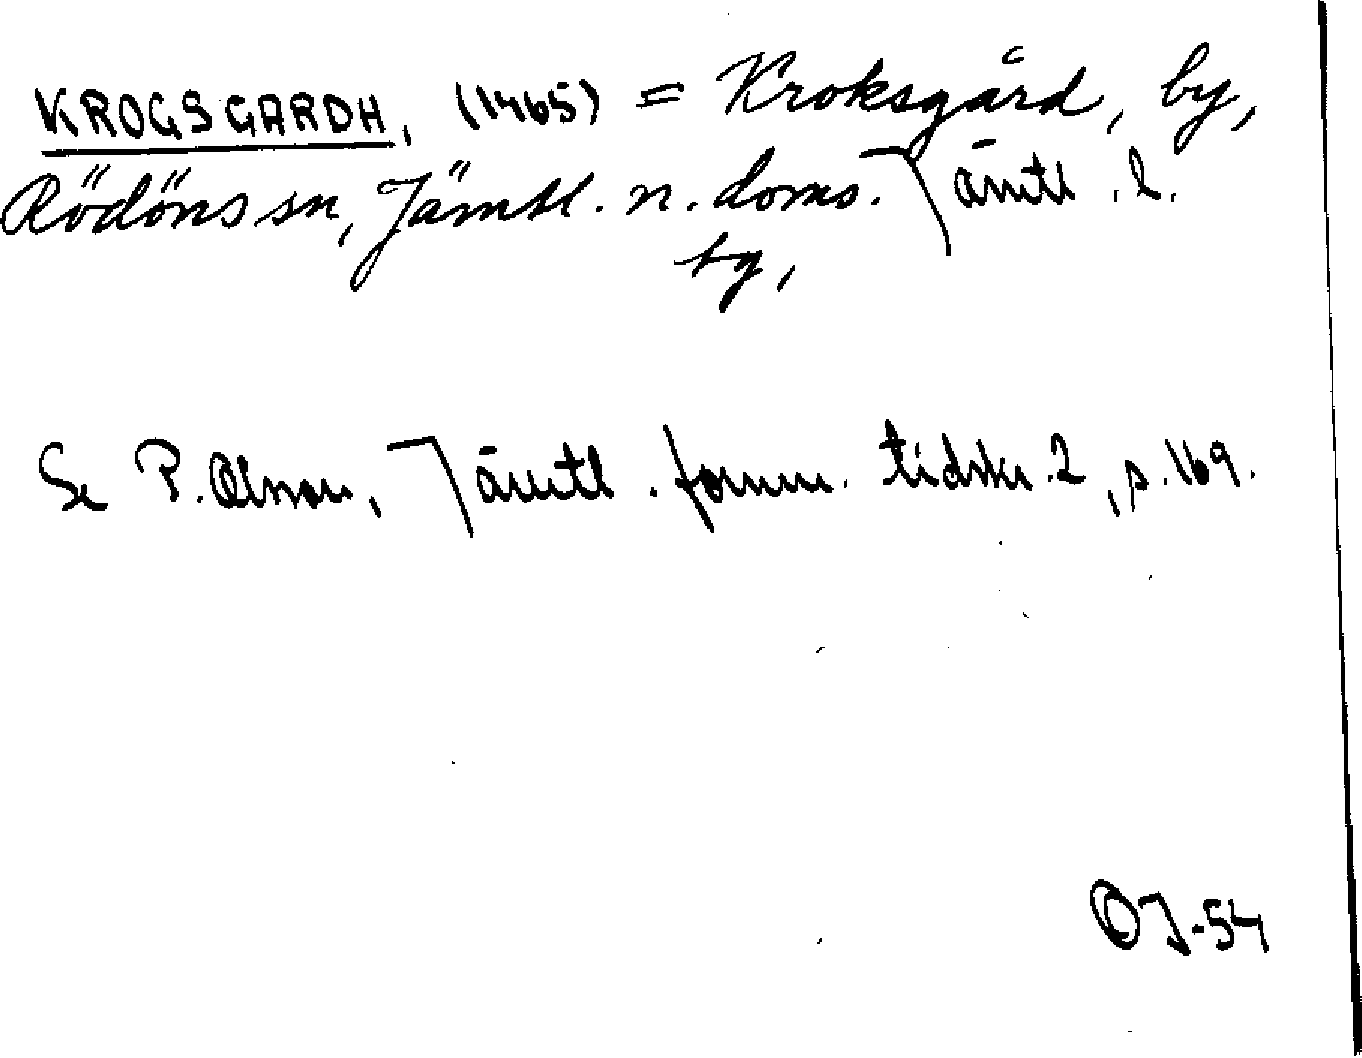 KROGSGARDH, (1465) = Kroksgård, by,
Rödöns sn, Jämtl. n. doms. Jämtl. l.
by,
Se P. Olsson, Jämtl. fornm. tidskr. 2, s. 169.
OJ-54